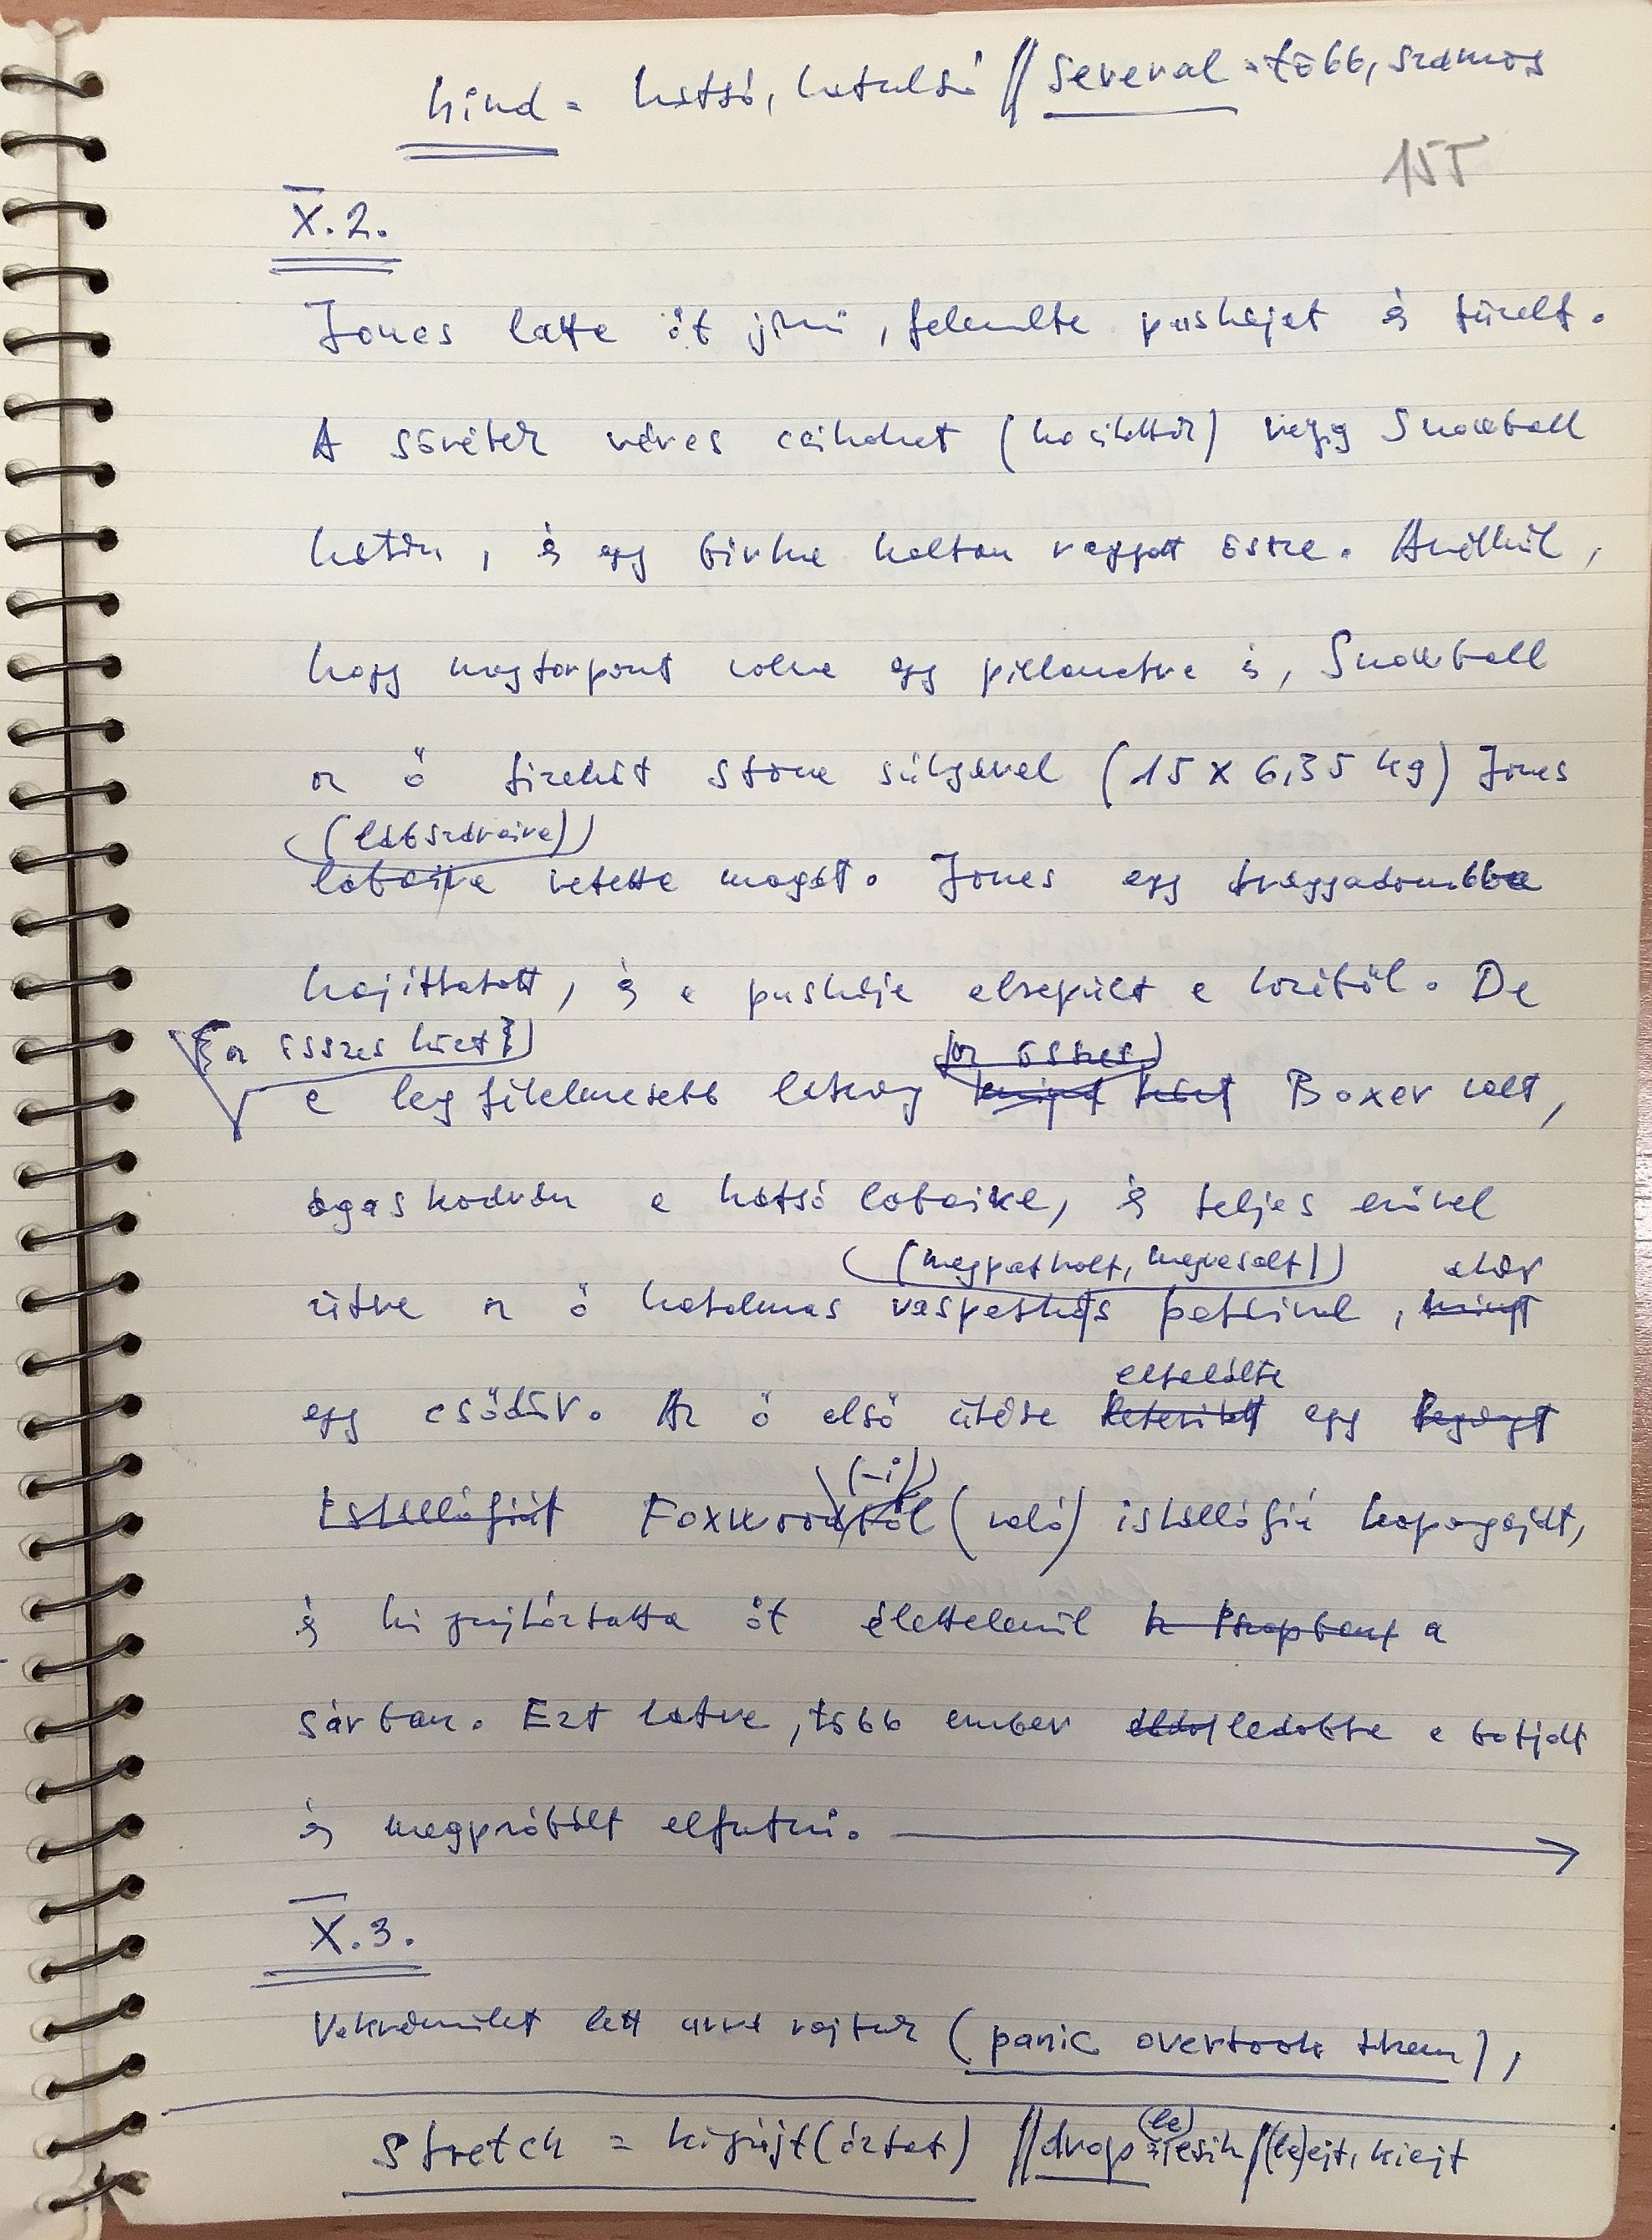 hind = hátsó, hatulsó // several = több, számos
155
X.2.
Jones látta őt jönni, felemelte puskáját és tüzelt.
A sörétek véres csíkokat (hasítottak) végig Snowball
hátán, és egy birka holtan rogyott össze. Anélkül,
hogy megtorpant volna egy pillanatra is, Snowball
az ő tizenöt stone súlyával (15 x 6,35 kg) Jones
(lábszáraira)
lábaira vetette magát. Jones egy trágyadombba
hajíttatott, és a puskája elrepült a kezéből. De
[az összes közt]
(az összes)
a legfélelmesebb látvány Boxer volt,
ágaskodván a hátsó lábaikra, és teljes erővel
(megpatkolt, megvasalt) akár
ütve az ő hatalmas vaspatkós patáival, mint
eltalálta
egy csődör. Az ő első ütése leterített egy
(-i)
istállófiút Foxwoodtól (való) istállófiú koponyáját,
és kinyújtóztatta őt élettelenül a
sárban. Ezt látva, több ember ledobta a botját
és megpróbált elfutni.
X.3.
lett úrrá rajtuk (panic overtook them),
stretch = kinyújt(óztat) // drop = (le)esik / (le)ejt, kiejt